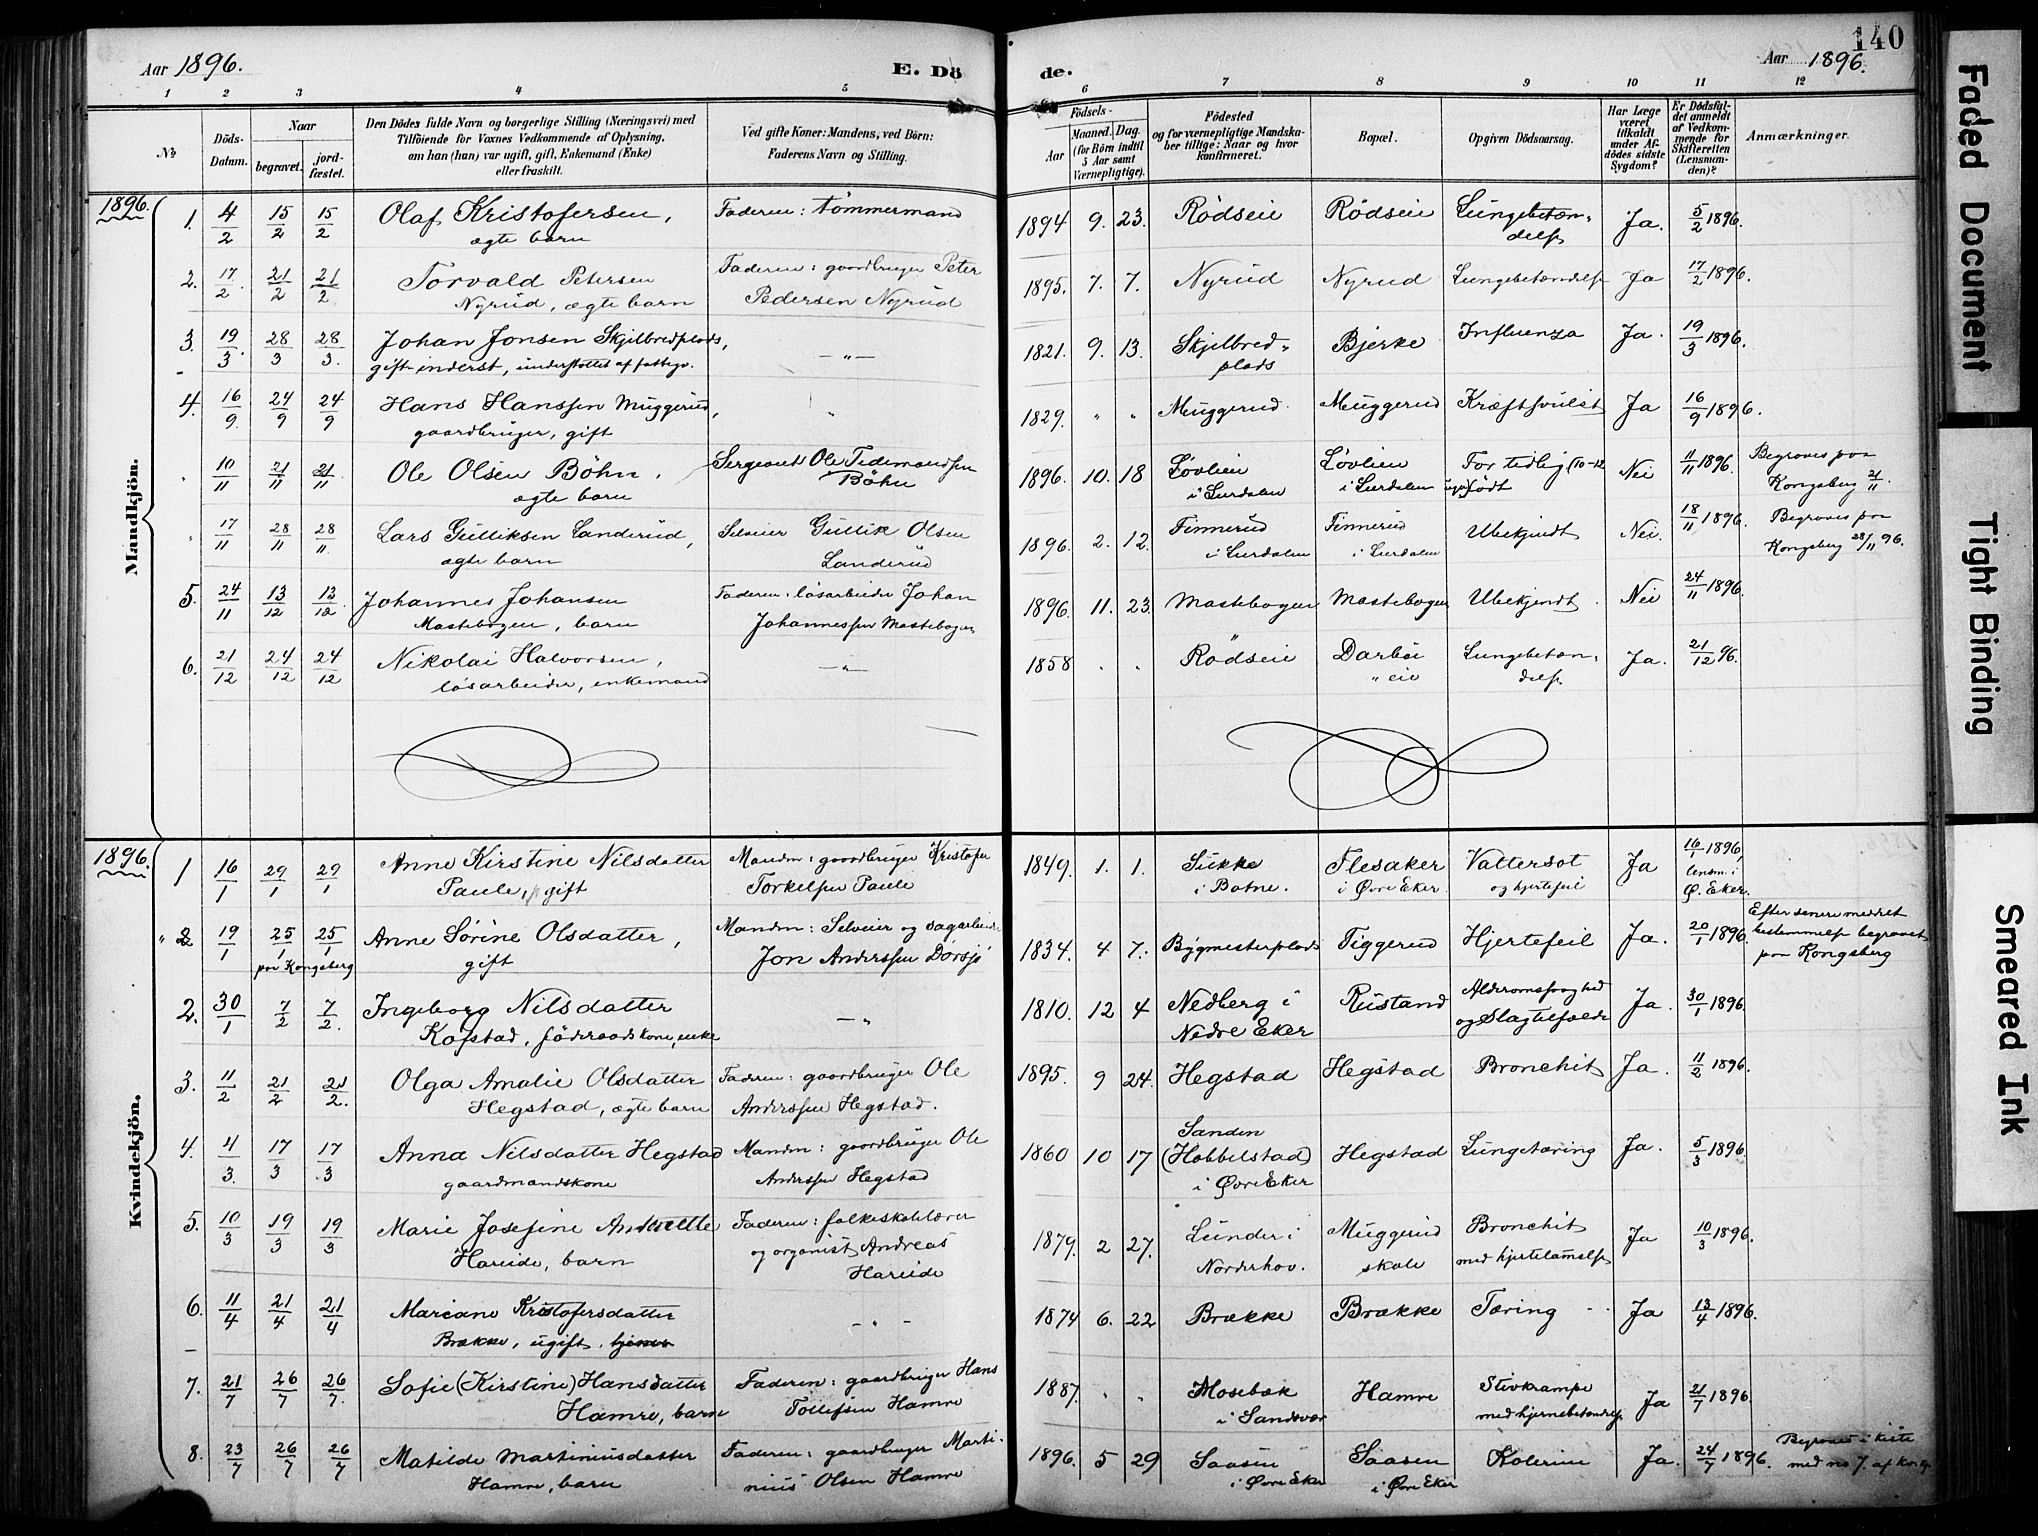 Aar 1896.
E. Dö
de.
Aar 1896.
140
1 2 3 4 5 6 7 8 9 10 11 12
No
Döds-Datum.
Naar
begravet.
jord-fæstet.
Den Dödes fulde Navn og borgerlige Stilling (Næringsvei) med
Tilföiende for Voxnes Vedkommende af Oplysning,
om han (han) var ugift, gift, Enkemand (Enke)
eller fraskilt.
Ved gifte Koner: Mandens, ved Börn:
Faderens Navn og Stilling.
Födsels-
Aar
Maaned. Dag.
(for Börn indtil
5 Aar samt
Værnepligtige).
Födested
og for værnepligtige Mandska-
ber tillige: Naar og hvor
konfirmeret.
Bopæl.
Opgiven Dödsaarsag.
Har Læge
været
tilkaldt
under Af-
dödes sidste
Sygdom?
Er Dödsfal-
det anmeldt
af Vedkom-
mende for
Skifteretten
(Lensman-
den)?
Anmærkninger.
Mandkjön.
1896.
1. 4/2 15/2 15/2 Olaf Kristofersen, Faderen: tömmermand 1894 9. 23. Rödseie Rödseie Lungebetæn- Ja. 5/2 1896.
ægte barn delse
2. 17/2 21/2 21/2 Torvald Petersen Faderen: gaardbruger Peter 1895. 7. 7. Nyrud Nyrud Lungebetændelse Ja 17/2 1896.
Nyrud, ægte barn Pedersen Nyrud
3. 19/3 28/3 28/3 Johan Jonsen Skjelbredplads, —"— 1821. 9. 13. Skjelbred- Bjerke Influenza Ja. 19/3 1896.
gift inderst, understöttet af fattigv. plads
4. 16/9 24/9 24/9 Hans Hanssen Muggerud, " 1829. " " Muggerud Muggerud Kræftsvulst Ja 16/9 1896.
gaardbruger, gift
" 10/11 21/11 21/11 Ole Olsen Böhn, Sergeant Ole Tidemandsen 1896. 10. 18 Lövlien Lövlien For tidlig (10-12 Nei 11/11 1896. Begroves paa
ægte barn Böhn i Lurdalen i Lurdalen uger) født Kongsberg 21/11
" 17/11 28/11 28/11 Lars Gulliksen Landerud, Selveier Gullik Olsen 1896. 2. 12. Finnerud Finnerud Ubekjendt Nei. 18/11 1896. Begroves paa
ægte barn Landerud i Lurdalen i Lurdalen Kongsberg 28/11 96.
5. 24/11 13/12 13/12 Johannes Johansen Faderen: løsarbeider Johan 1896. 11. 23 Mastebogen Mastebogen Ubekjendt Nei 24/11 1896.
Mastebogen, barn Johannessen Mastebogen
6. 21/12 24/12 24/12 Nikolai Halvorsen, —"— 1858 " " Rödseie Darböe Lungebetæn- Ja. 21/12 96.
løsarbeider, enkemand " eie delse
Kvindekjön.
1896.
1 16/1 29/1 29/1 Anne Kirstine Nilsdatter Manden: gaardbruger Kristofer 1849. 1. 1. Sukke Flesaker Vattersot Ja 16/1 1896,
Paule, gift Torkelsen Paule i Botne. i Øvre Eker. og hjertefeil lensm. i
Ø. Eker.
" 2 19/1 25/1 25/1 Anne Sörine Olsdatter, Manden: Selveier og dagarbeider 1834. 4 7. Bygmesterplads Tiggerud Hjertefeil Ja. 20/1 1896. Efter senere meddelt
paa Kongsberg gift Jon Anderssen Dörsjö bestemmelse begravet
paa Kongsberg
2. 30/1 7/2 7/2. Ingeborg Nilsdatter —" 1810. 12 4 Nedberg i Rustand Alderomssvaghed Ja. 30/1 1896.
Kofstad, föderaadskone, enke Nedre Eker og Slagtilfælde
3. 11/2 21/2 21/2. Olga Amalie Olsdatter Faderen: gaardbruger Ole 1895. 9 24. Hegstad Hegstad Bronchit Ja. 11/2 1896.
Hegstad, ægte barn Anderssen Hegstad.
4. 4/3. 17/3 17/3 Anna Nilsdatter Hegstad Manden: gaardbruger Ole 1860 10 17 Sanden Hegstad Lungetæring Ja. 5/3 1896.
gaardmandskone Anderssen Hegstad (Hobbelstad)
i Øvre Eker
5. 10/3 19/3 19/3 Marie Josefine Faderen: folkeskolelærer 1879. 2 27. Lunder i Muggerud Bronchit Ja 10/3 1896.
Hareide, barn og organist Andreas Norderhov. skole med hjertelammelse
Hareide
6. 11/4 21/4 21/4 Mariane Kristofersdatter - " - 1874 6. 22 Brække Brække Tæring Ja 13/4 1896.
Brække, ugift, tjener
7. 21/7 26/7 26/7. Sofie (Kirstine) Hansdatter Faderen: gaardbruger Hans 1887. " " Mosebæk Hamre Stivkrampe Ja 21/7 1896
Hamre, barn Tollefsen Hamre i Sandsvær med hjernebetændelse
8. 23/7 26/7 26/7 Matilde Martiniusdatter Faderen: gaardbruger Marti- 1896. 5 29 Saasen Saasen Kolerine Ja. 24/7 1896. Begroves i kiste
Hamre, barn nius Olsen Hamre i Øvre Eker i Øvre Eker med no 7. af
Faded Document
Tight Binding
Smeared Ink